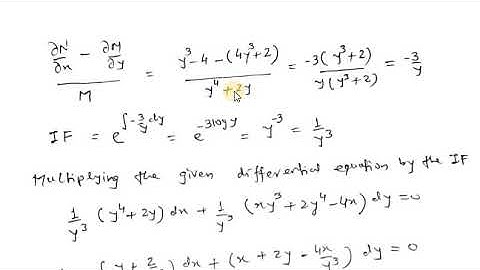 ∂N/∂x - ∂M/∂y / M = y³-4-(4y³+2) / y⁴+2y = -3(y³+2) / y(y³+2) = -3/y
IF = e^∫-3/y dy = e^-3logy = y^-3 = 1/y³
Multiplying the given differential equation by the IF
1/y³ (y⁴+2y) dx + 1/y³ (xy³+2y⁴-4x) dy =0
(y + 2/ ) dx + (x + 2y - 4x/y³) dy = 0